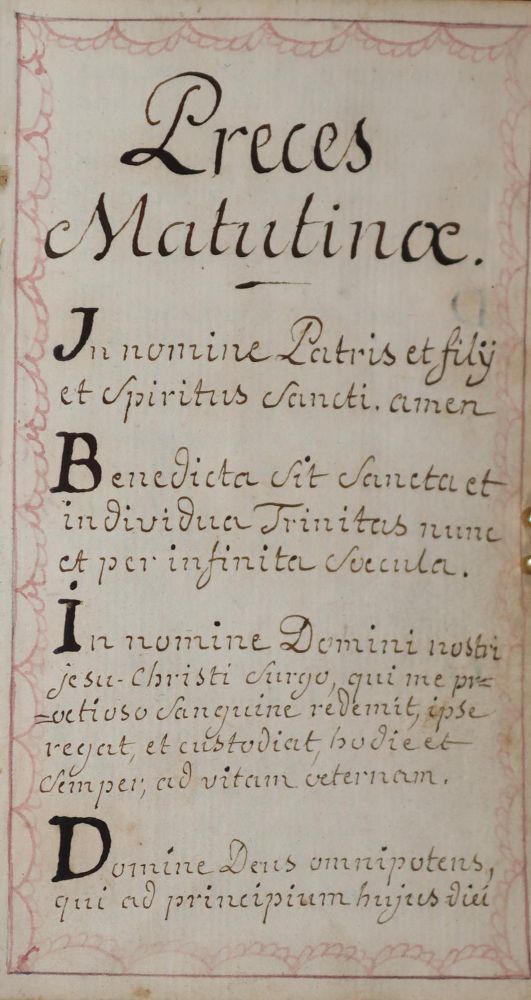 Preces
Matutinæ.
In nomine Patris et filÿ
et Spiritus Sancti. amen
Benedicta Sit Sancta et
individua Trinitas nunc
et per infinita Sæcula.
In nomine Domini nostri
jesu-Christi Surgo, qui me pr=
=œtioso Sanguine redemit, ipse
regat, et custodiat, hodie et
Semper, ad vitam œternam.
Domine Deus omnipotens,
qui ad principium hujus diei